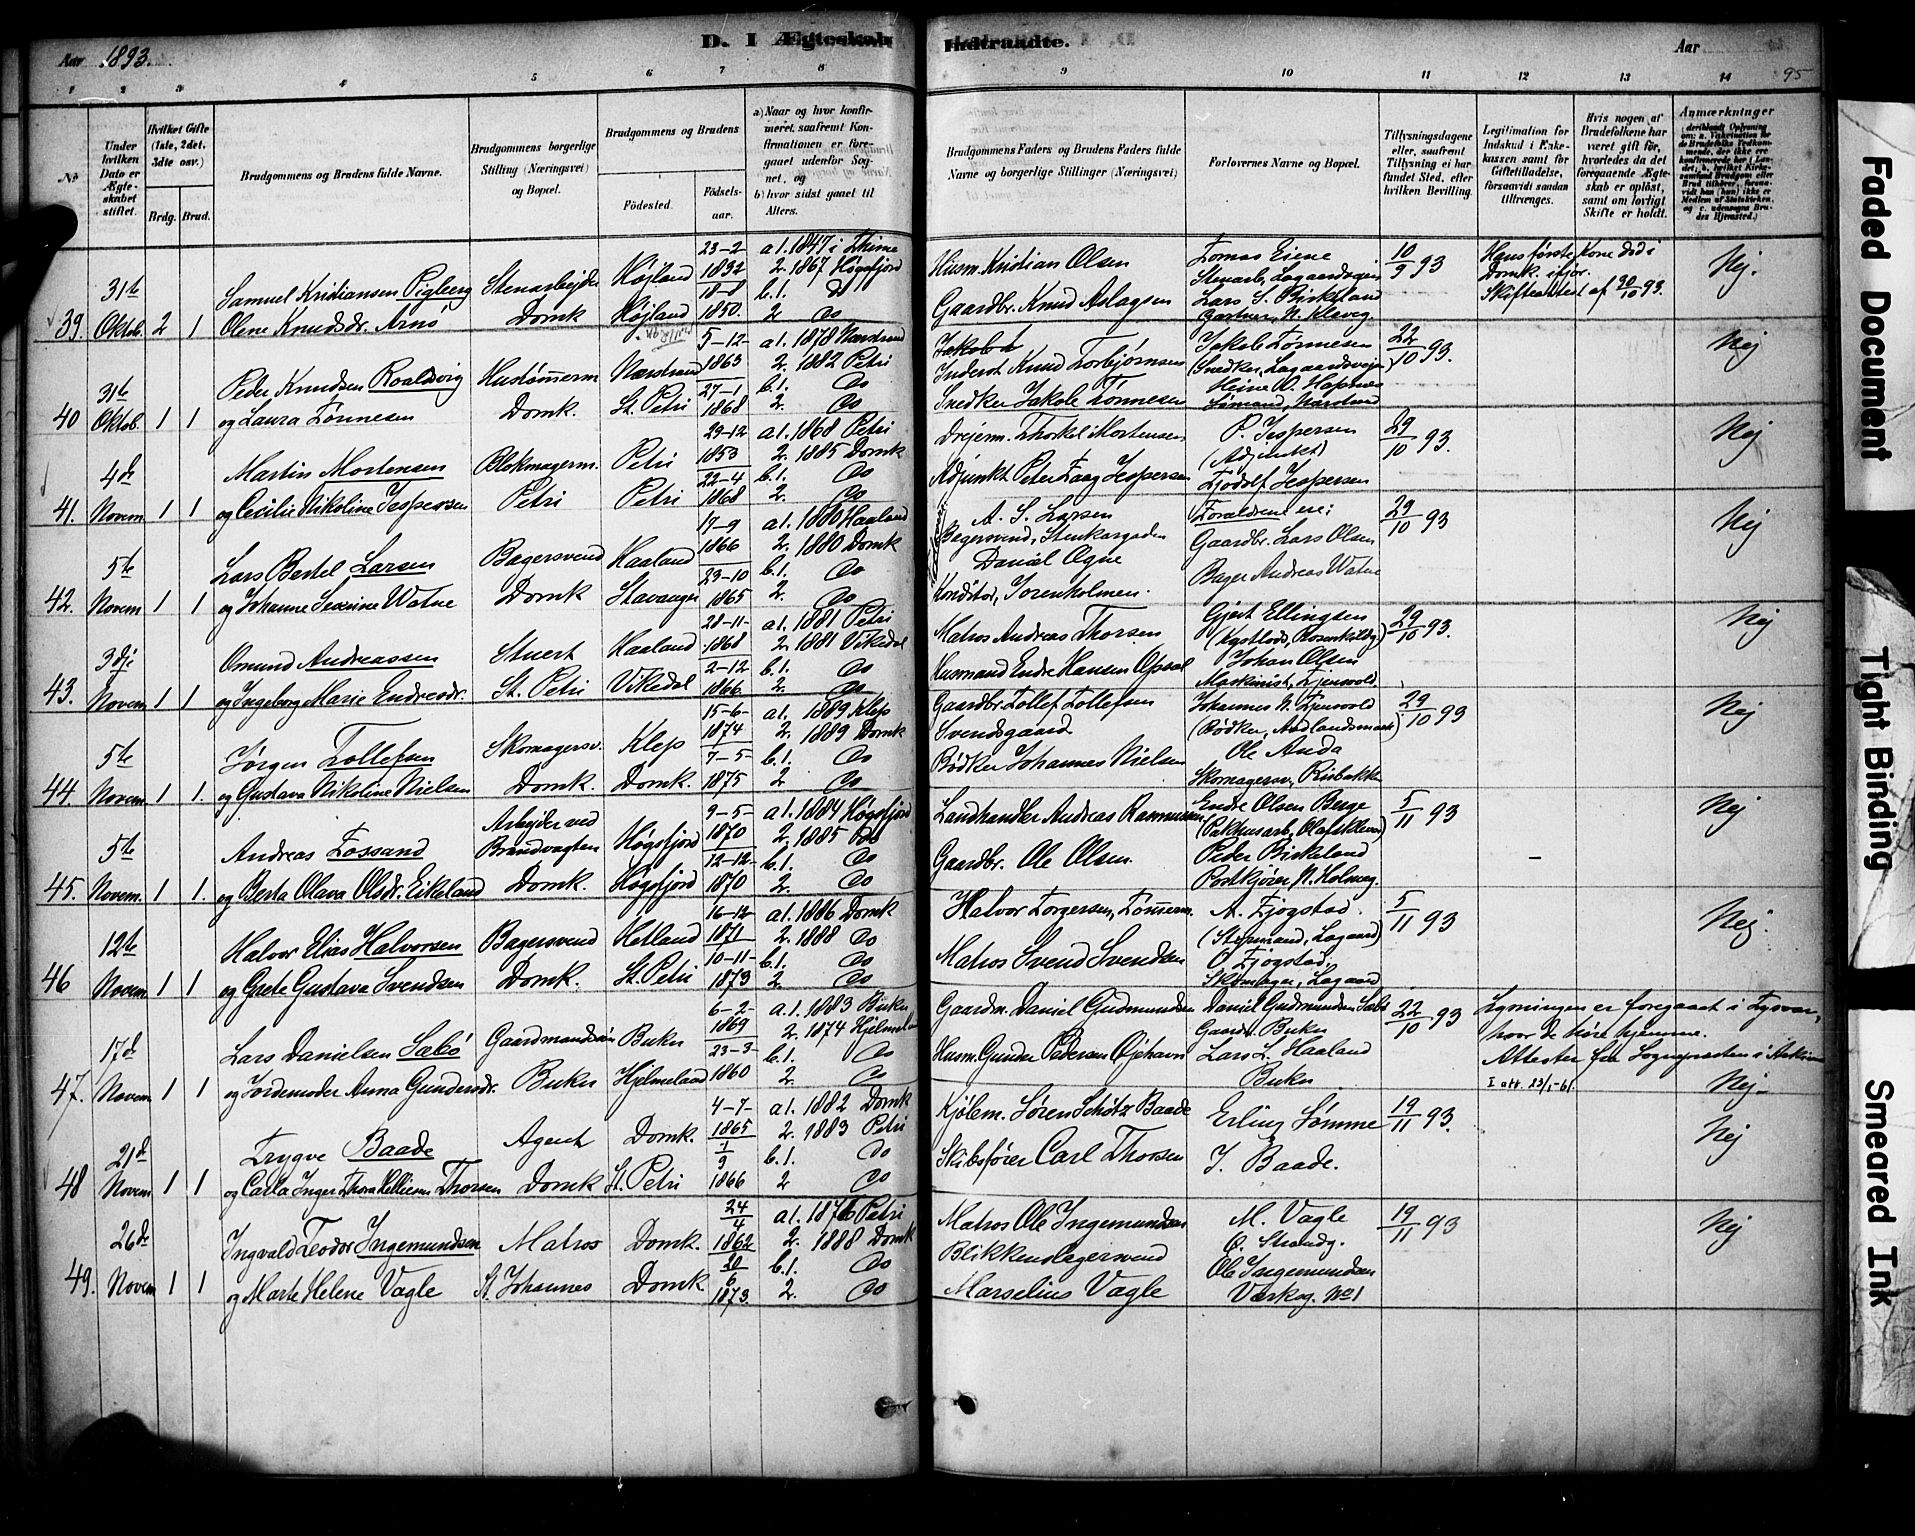 Aar 1893.
D. I Ægteskab Indtraadte.
Aar 95
1 2 3 4 5 6 7 8 9 10 11 12 13 14
No
Under hvilken Dato er Ægteskabet stiftet.
Hvilket Gifte (1ste, 2det, 3dte osv.)
Brdg. Brud.
Brudgommens og Brudens fulde Navne.
Brudgommens borgerlige Stilling (Næringsvei) og Bopæl.
Brudgommens og Brudens
Fødested. Fødselsaar.
a) Naar og hvor konfirmeret, saafremt Konfirmationen er foregaaet udenfor Sognet, og
b) hvor sidst gaaet til Alters.
Brudgommens Faders og Brudens Faders fulde Navne og borgerlige Stillinger (Næringsvei)
Forlovernes Navne og Bopæl.
Tillysningsdagene eller, saafremt Tillysning ei har fundet Sted, efter hvilken Bevilling.
Legitimation for Indskud i Enkekassen samt for Giftetilladelse, forsaavidt saadan tiltrænges.
Hvis nogen af Brudefolkene har været gift før, hvorledes da det foregaaende Ægteskab er opløst, samt om lovligt Skifte er holdt.
Anmærkninger
39. 31te Oktob. 2 1
Samuel Kristiansen Pigberg
Olene Knudsdr. Arnö
Stenarbeider
Domk
Højland
Højland
23-2 1832
18-8 1850.
a 1. 1847 i Thime
2. 1867 Høgsfjord
b. 1. Do
2 Do
Husm. Kristian Olsen
Gaardbr. Knud Aslagsen
Tomas Eiene
Stenarb, Lagaardsveien
Lars S. Birkeland
Gartner, N. Kleveg.
10/9 93
Hans første Kone död i Domk. ifjor.
Skifteattest af 30/10 93.
Nej.
40 31te Oktob. 1 1
Peder Knudsen Roaldsvig
og Laura Tönnesen
Hustømmerm
Domk.
Nærstrand
St. Petri
5-12 1863
27-1 1868
a 1. 1878 Nærstrand
2. 1882 Petri
b. 1. Do
2. Do
Jakob
Inderst Knud Torbjørnsen
Snedker Jakob Tönnesen
Jakob Tönnesen
(Snedker, Lagaardsveien)
Heine O. Hapnes
Sömand, Narstrand
22/10 93.
Nej
41. 4de Novem 1 1
Martin Mortensen
og Cecilie Nikoline Jespersen
Blokmagerm.
Petri
Petri
Petri
29-12 1853
22-4 1868
a 1. 1868 Petri
2. 1885 Domk
b. 1. Do
2. Do
Drejerm. Thorkel Mortensen
Adjunkt Peter Faag Jespersen
P. Jespersen
(Adjunkt)
Tjodolf Jespersen
29/10 93.
Nej
42. 5te Novem 1 1
Lars Bertel Larsen
og Johanne Severine Watne
Bagersvend
Domk
Haaland
Stavanger
17-9 1866
23-10 1865
a 1. 1880 Haaland
2. 1880 Domk
b. 1. Do
2. Do
A. S. Larsen
Bagersvend, Stenkargaden
Daniel Ogne
Konditor, Jorenholmen.
Forældrene ere:
Gaardbr. Lars Olsen
Bager Andreas Watne
29/10 93
Nej
43. 3dje Novem 1 1
Omund Andreassen
og Ingeborg Marie Endresdr.
Stuert
St. Petri
Haaland
Vikedal
28-11- 1868
2-12 1866
a 1. 1881 Petri
2. 1881 Vikedal
b. 1. Do
2. Do
Matros Andreas Thorsen
Husmand Endre Hansen Opsal
Gjert Ellingsen
(Kystlods, Rosenkildg)
Johan Olsen
Maskinist, Tjensvold.
29/10 93.
Nej
44. 5te Novem 1 1.
Jørgen Tollefsen
og Gustava Nikoline Nielsen
Skomagersv.
Domk.
Klep
Domk.
15-6- 1874
7-5- 1875
a 1. 1889 Klep
2. 1889 Domk
b. 1. Do
2 Do
Gaardbr. Tollef Tollefsen
Svendsgaard
Bødker Johannes Nielsen
Johannes N. Tjensvold
(Bødker, Aadlandsmark)
Ole Anda
Skomagersv, Risbakke
29/10 93
Nej
45. 5te Novem. 1 1.
Andreas Fossand
og Berta Olava Olsdr. Eikeland
Arbejder ved Brandvagten
Domk.
Høgsfjord
Høgsfjord
9-5- 1870
12-12- 1870
a 1. 1884 Høgsfjord
2. 1885 Do
b. 1. Do
2. Do
Landhandler Andreas Rasmussen
Gaardbr. Ole Olsen.
Endre Olsen Berge
(Pakhusarb, Olafskleven)
Peder Birkeland
Postkjører, N. Holmeg.
5/11 93
–
Nej
46 12te Novem. 1 1
Halvor Elias Halvorsen
og Grete Gustava Svendsen
Bagersvend
Domk.
Hetland
St. Petri
16-12 1871
10-11- 1873
a 1. 1886 Domk
2. 1888 Do
b. 1. Do
2 Do
Halvor Torgersen, Tömmerm.
Matros Svend Svendsen
A. Tjogstad.
(Stepmand, Lagaard)
O Tjogstad.
Skomager, Lagaard
5/11 93
Nej.
47. 17de Novem. 1 1
Lars Danielsen Sæbö
og Jordemoder Anna Gundersdr.
Gaardmandssön
Buken
Buken
Hjelmeland
6-2- 1869
23-3- 1860
a. 1. 1883 Buken
2. 1874 Hjelmeland
b. 1. Do
2. Do
Gaardm. Daniel Gudmundsen
Husm. Gunder Pedersen Øjehavn
Daniel Gudmundsen Sæbö
Gaardbr. Buken
Lars L. Haaland
Buken
22/10 93
Lysningen er foregaaet i Tysvær, hvor de höre hjemme.
Attester fra Sognepresten i
I att. 23/1-61.
Nej.
48 21de Novem 1 1
Trygve Baade
og Carla Inger Thora Kelliesen Thorsen
Agent
Domk
Domk.
St. Petri
4-7- 1865
1/9 1866
a 1. 1882 Domk
2. 1883 Petri
b. 1. Do
2 Do
Kjølem. Søren Schötz Baade
Skibsfører Carl Thorsen
Erling Sømme
J. Baade.
19/11 93.
Nej
49. 26de Novem 1 1
Ingvald Teodor Ingemundsen
og Marte Helene Vagle
Matros
St. Johannes
Domk.
Domk
24/4 1862
20/6 1873.
a 1. 1876 Petri
2. 1888 Domk
b. 1. Do
2. Do
Matros Ole Ingemundsen
Blikkenslagersvend
Marselius Vagle
M. Vagle
Ø. Strandg.
Ole Ingemundsen
Værksg. No 1
19/11 93
Nej
Faded Document
Tight Binding
Smeared Ink